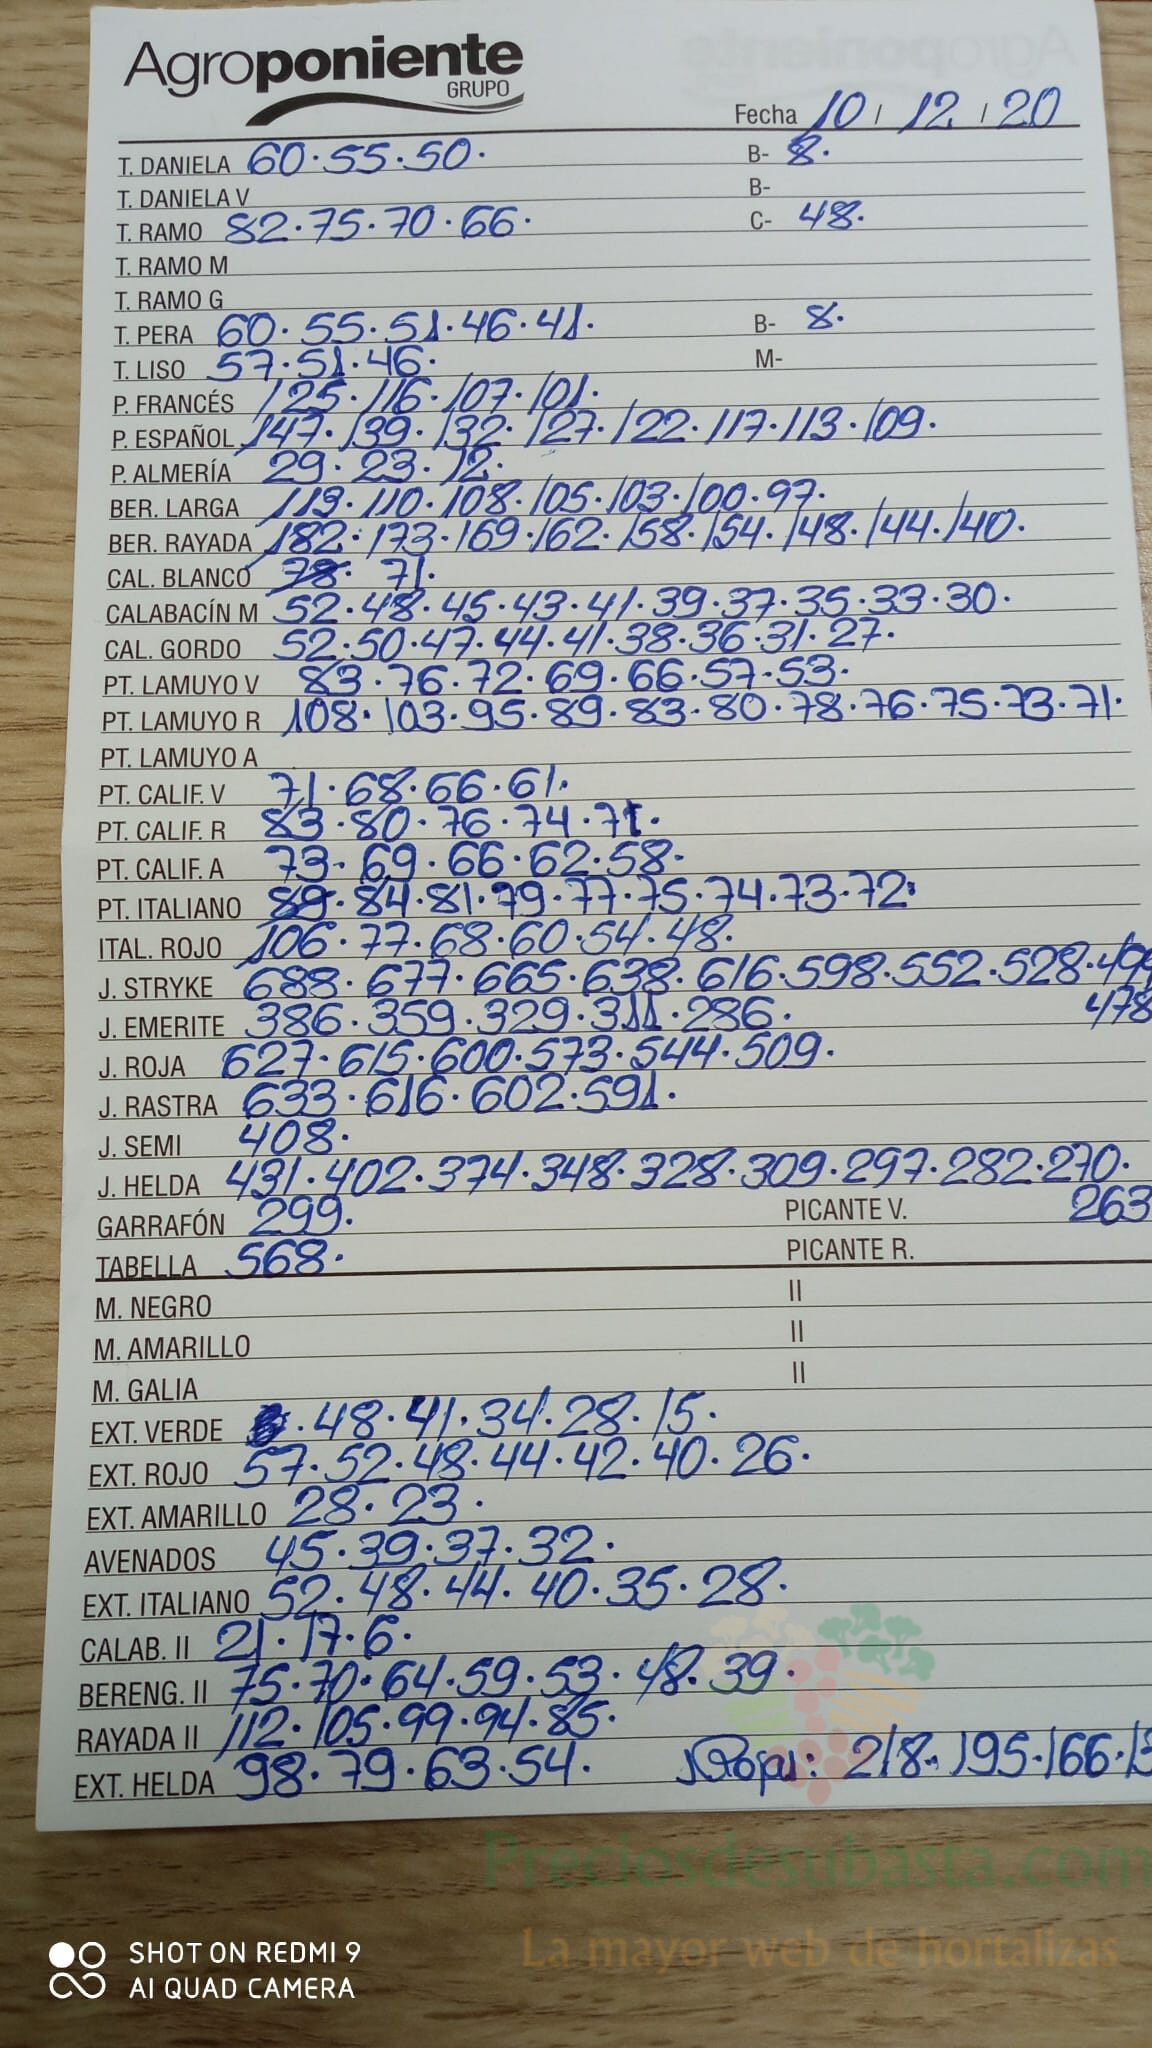 Agroponiente
GRUPO
Fecha 10 / 12 / 20
T. DANIELA 60.55.50. B- 8.
T. DANIELA V B-
T. RAMO 82.75.70.66. C- 48.
T. RAMO M
T. RAMO G
T. PERA 60.55.51.46.41. B- 8.
T. LISO 57.51.46. M-
P. FRANCÉS 125.116.107.101.
P. ESPAÑOL 147.139.132.127.122.117.113.109.
P. ALMERÍA 29.23.12.
BER. LARGA 113.110.108.105.103.100.97.
BER. RAYADA 182.173.169.162.158.154.148.144.140.
CAL. BLANCO 78.71.
CALABACÍN M 52.48.45.43.41.39.37.35.33.30.
CAL. GORDO 52.50.47.44.41.38.36.31.27.
PT. LAMUYO V 83.76.72.69.66.57.53.
PT. LAMUYO R 108.103.95.89.83.80.78.76.75.73.71.
PT. LAMUYO A
PT. CALIF. V 71.68.66.61.
PT. CALIF. R 83.80.76.74.71.
PT. CALIF. A 73.69.66.62.58.
PT. ITALIANO 89.84.81.79.77.75.74.73.72.
ITAL. ROJO 106.77.68.60.54.48.
J. STRYKE 688.677.665.638.616.598.552.528.499
J. EMERITE 386.359.329.311.286. 478
J. ROJA 627.615.600.573.544.509.
J. RASTRA 633.616.602.591.
J. SEMI 408.
J. HELDA 431.402.374.348.328.309.297.282.270.
GARRAFÓN 299. PICANTE V. 263
TABELLA 568. PICANTE R.
M. NEGRO II
M. AMARILLO II
M. GALIA II
EXT. VERDE .48.41.34.28.15.
EXT. ROJO 57.52.48.44.42.40.26.
EXT. AMARILLO 28.23.
AVENADOS 45.39.37.32.
EXT. ITALIANO 52.48.44.40.35.28.
CALAB. II 21.17.6.
BERENG. II 75.70.64.59.53.48.39.
RAYADA II 112.105.99.94.85.
EXT. HELDA 98.79.63.54. 218.195.166.13
Preciosdesubasta.com
La mayor web de hortalizas
SHOT ON REDMI 9
AI QUAD CAMERA